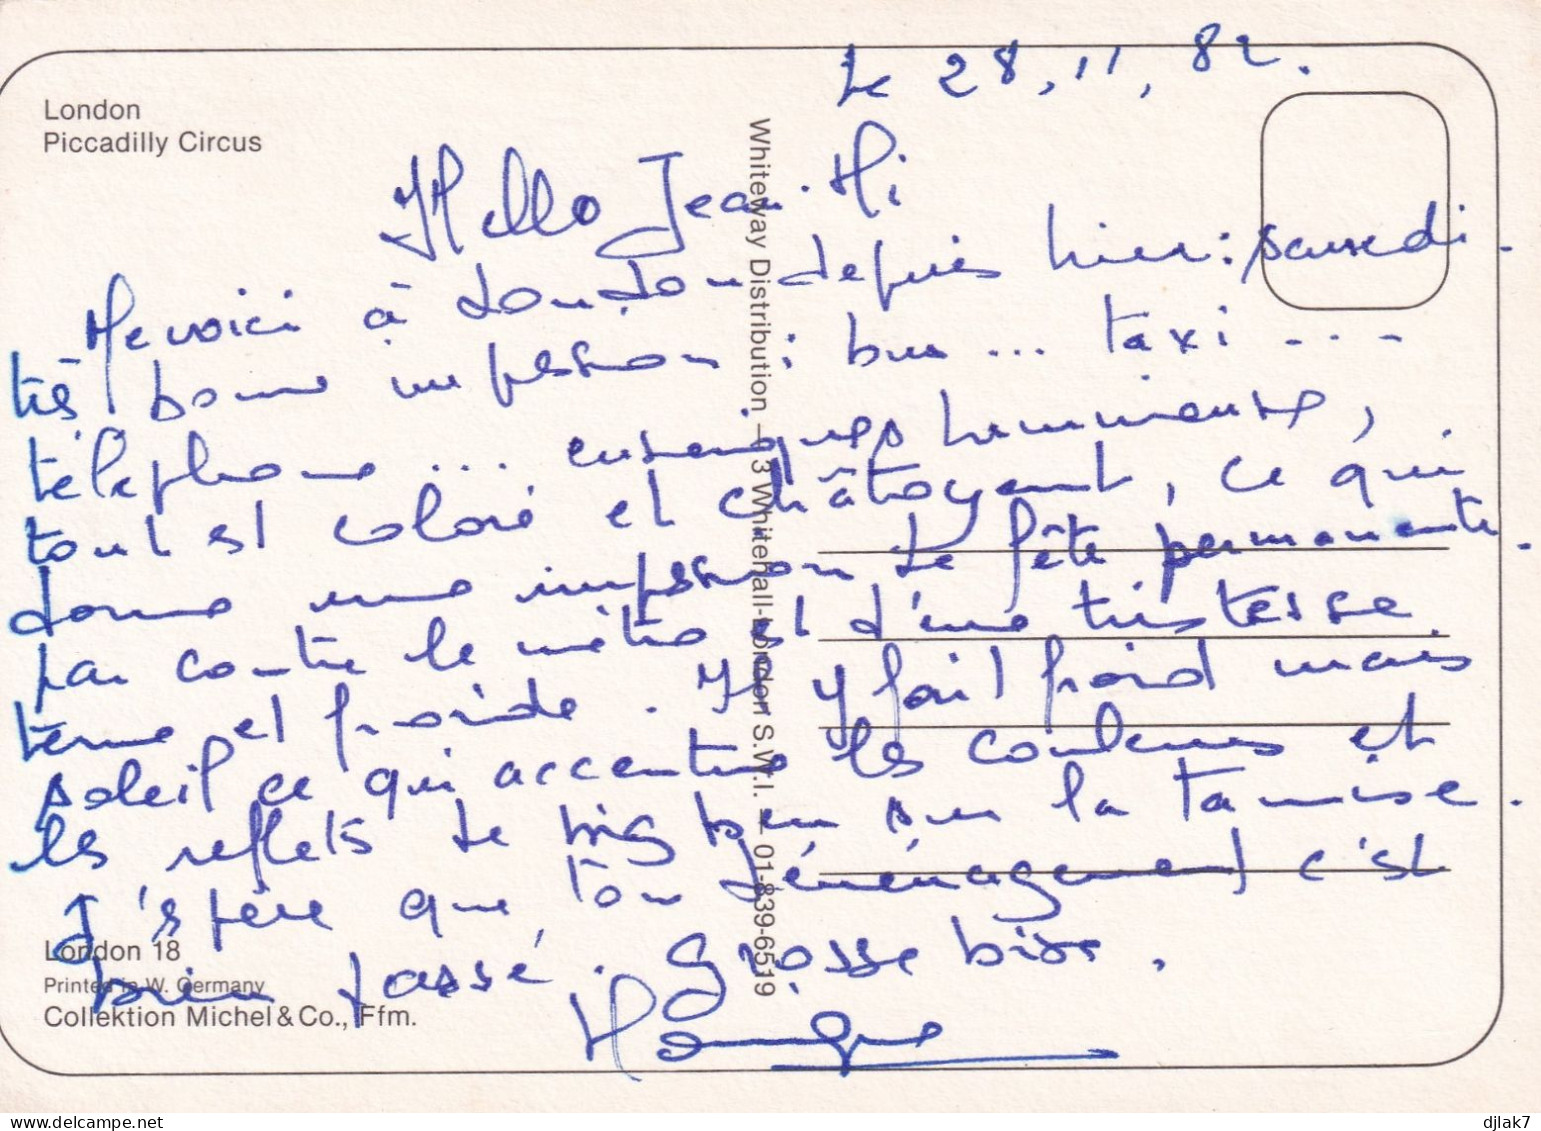 London
Piccadilly Circus
Le 28.11.82.
Hello Jean-Mi
Me voici à London depuis hier : samedi.
très bonne impression : bus ... taxi ...
téléphone ... enseignes lumineuses,
tout est coloré et châtoyant, ce qui
donne une impression de fête permanente.
par contre le métro est d'une tristesse
terne et froide. Il y fait froid mais
soleil ce qui accentue les couleurs et
les reflets de big ben sur la Tamise.
J'espère que ton déménagement c'est
bien passé. Grosse bise.
Monique
Whiteway Distribution – 3 Whitehall-London S.W.I. – 01-839-6519
London 18
Printed in W. Germany
Collektion Michel & Co., Ffm.
delcampe.net
djlak7